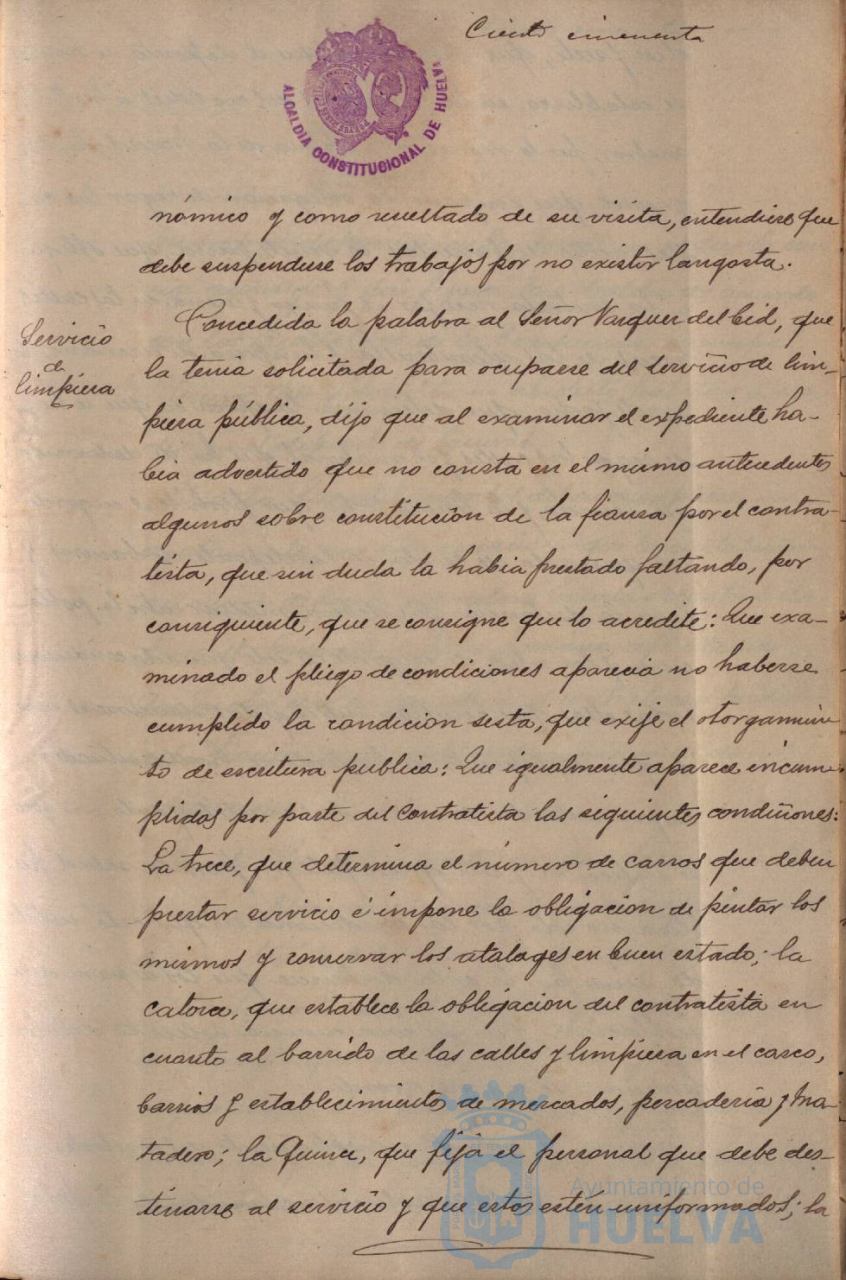 Ciento cincuenta
ALCALDIA CONSTITUCIONAL DE HUELVA
nómico y como resultado de su visita, entendiese que
debe suspenderse los trabajos por no existir langosta.
Servicio
de
limpieza
Concedida la palabra al Señor Vazquez del Cid, que
la tenia solicitada para ocuparse del servicio de lim-
pieza pública, dijo que al examinar el expediente ha-
bia advertido que no consta en el mismo antecedentes
algunos sobre constitucion de la fianza por el contra-
tista, que sin duda la habia prestado faltando, por
consiguiente, que se consigne que lo acredite: Que exa-
minado el pliego de condiciones aparecia no haberse
cumplido la condicion sesta, que exije el otorgamien-
to de escritura publica: Que igualmente aparece incum-
plidas por parte del contratista las siguientes condiciones:
La trece, que determina el número de carros que deben
prestar servicio é impone la obligacion de pintar los
mismos y conservar los atalages en buen estado; la
catorce, que establece la obligacion del contratista en
cuanto al barrido de las calles y limpieza en el casco,
barrios y establecimientos de mercados, pescaderia y Ma-
tadero; la Quince, que fija el personal que debe des-
tinarse al servicio y que estos estén uniformados; la
Ayuntamiento de
HUELVA